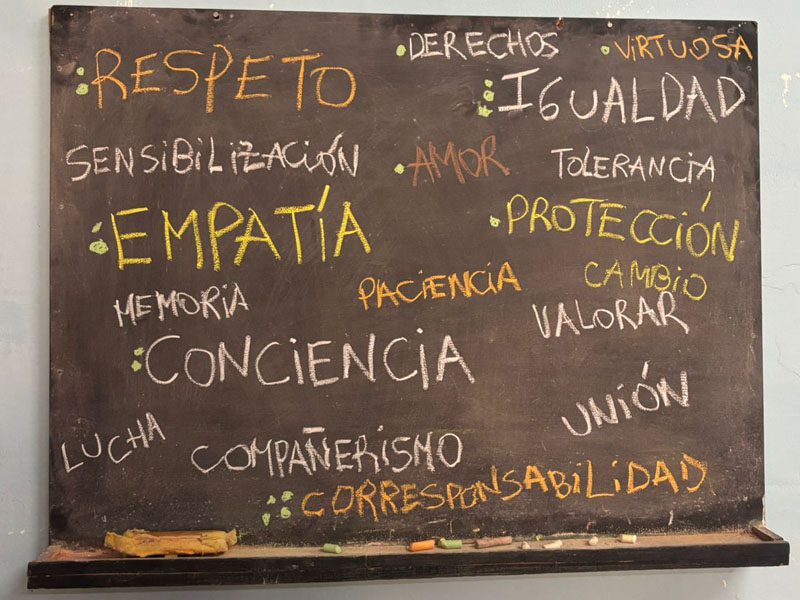 DERECHOS
VIRTUOSA
RESPETO
IGUALDAD
SENSIBILIZACIÓN
AMOR
TOLERANCIA
EMPATÍA
PROTECCIÓN
CAMBIO
PACIENCIA
MEMORIA
VALORAR
CONCIENCIA
UNIÓN
LUCHA
COMPAÑERISMO
CORRESPONSABILIDAD